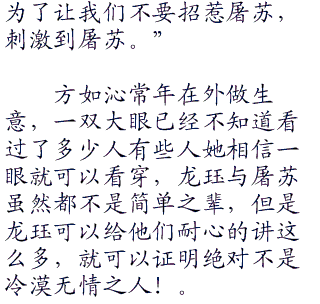 为了让我们不要招惹屠苏，
刺激到屠苏。”
方如沁常年在外做生
意，一双大眼已经不知道看
过了多少人有些人她相信一
眼就可以看穿，龙珏与屠苏
虽然都不是简单之辈，但是
龙珏可以给他们耐心的讲这
么多，就可以证明绝对不是
冷漠无情之人！。